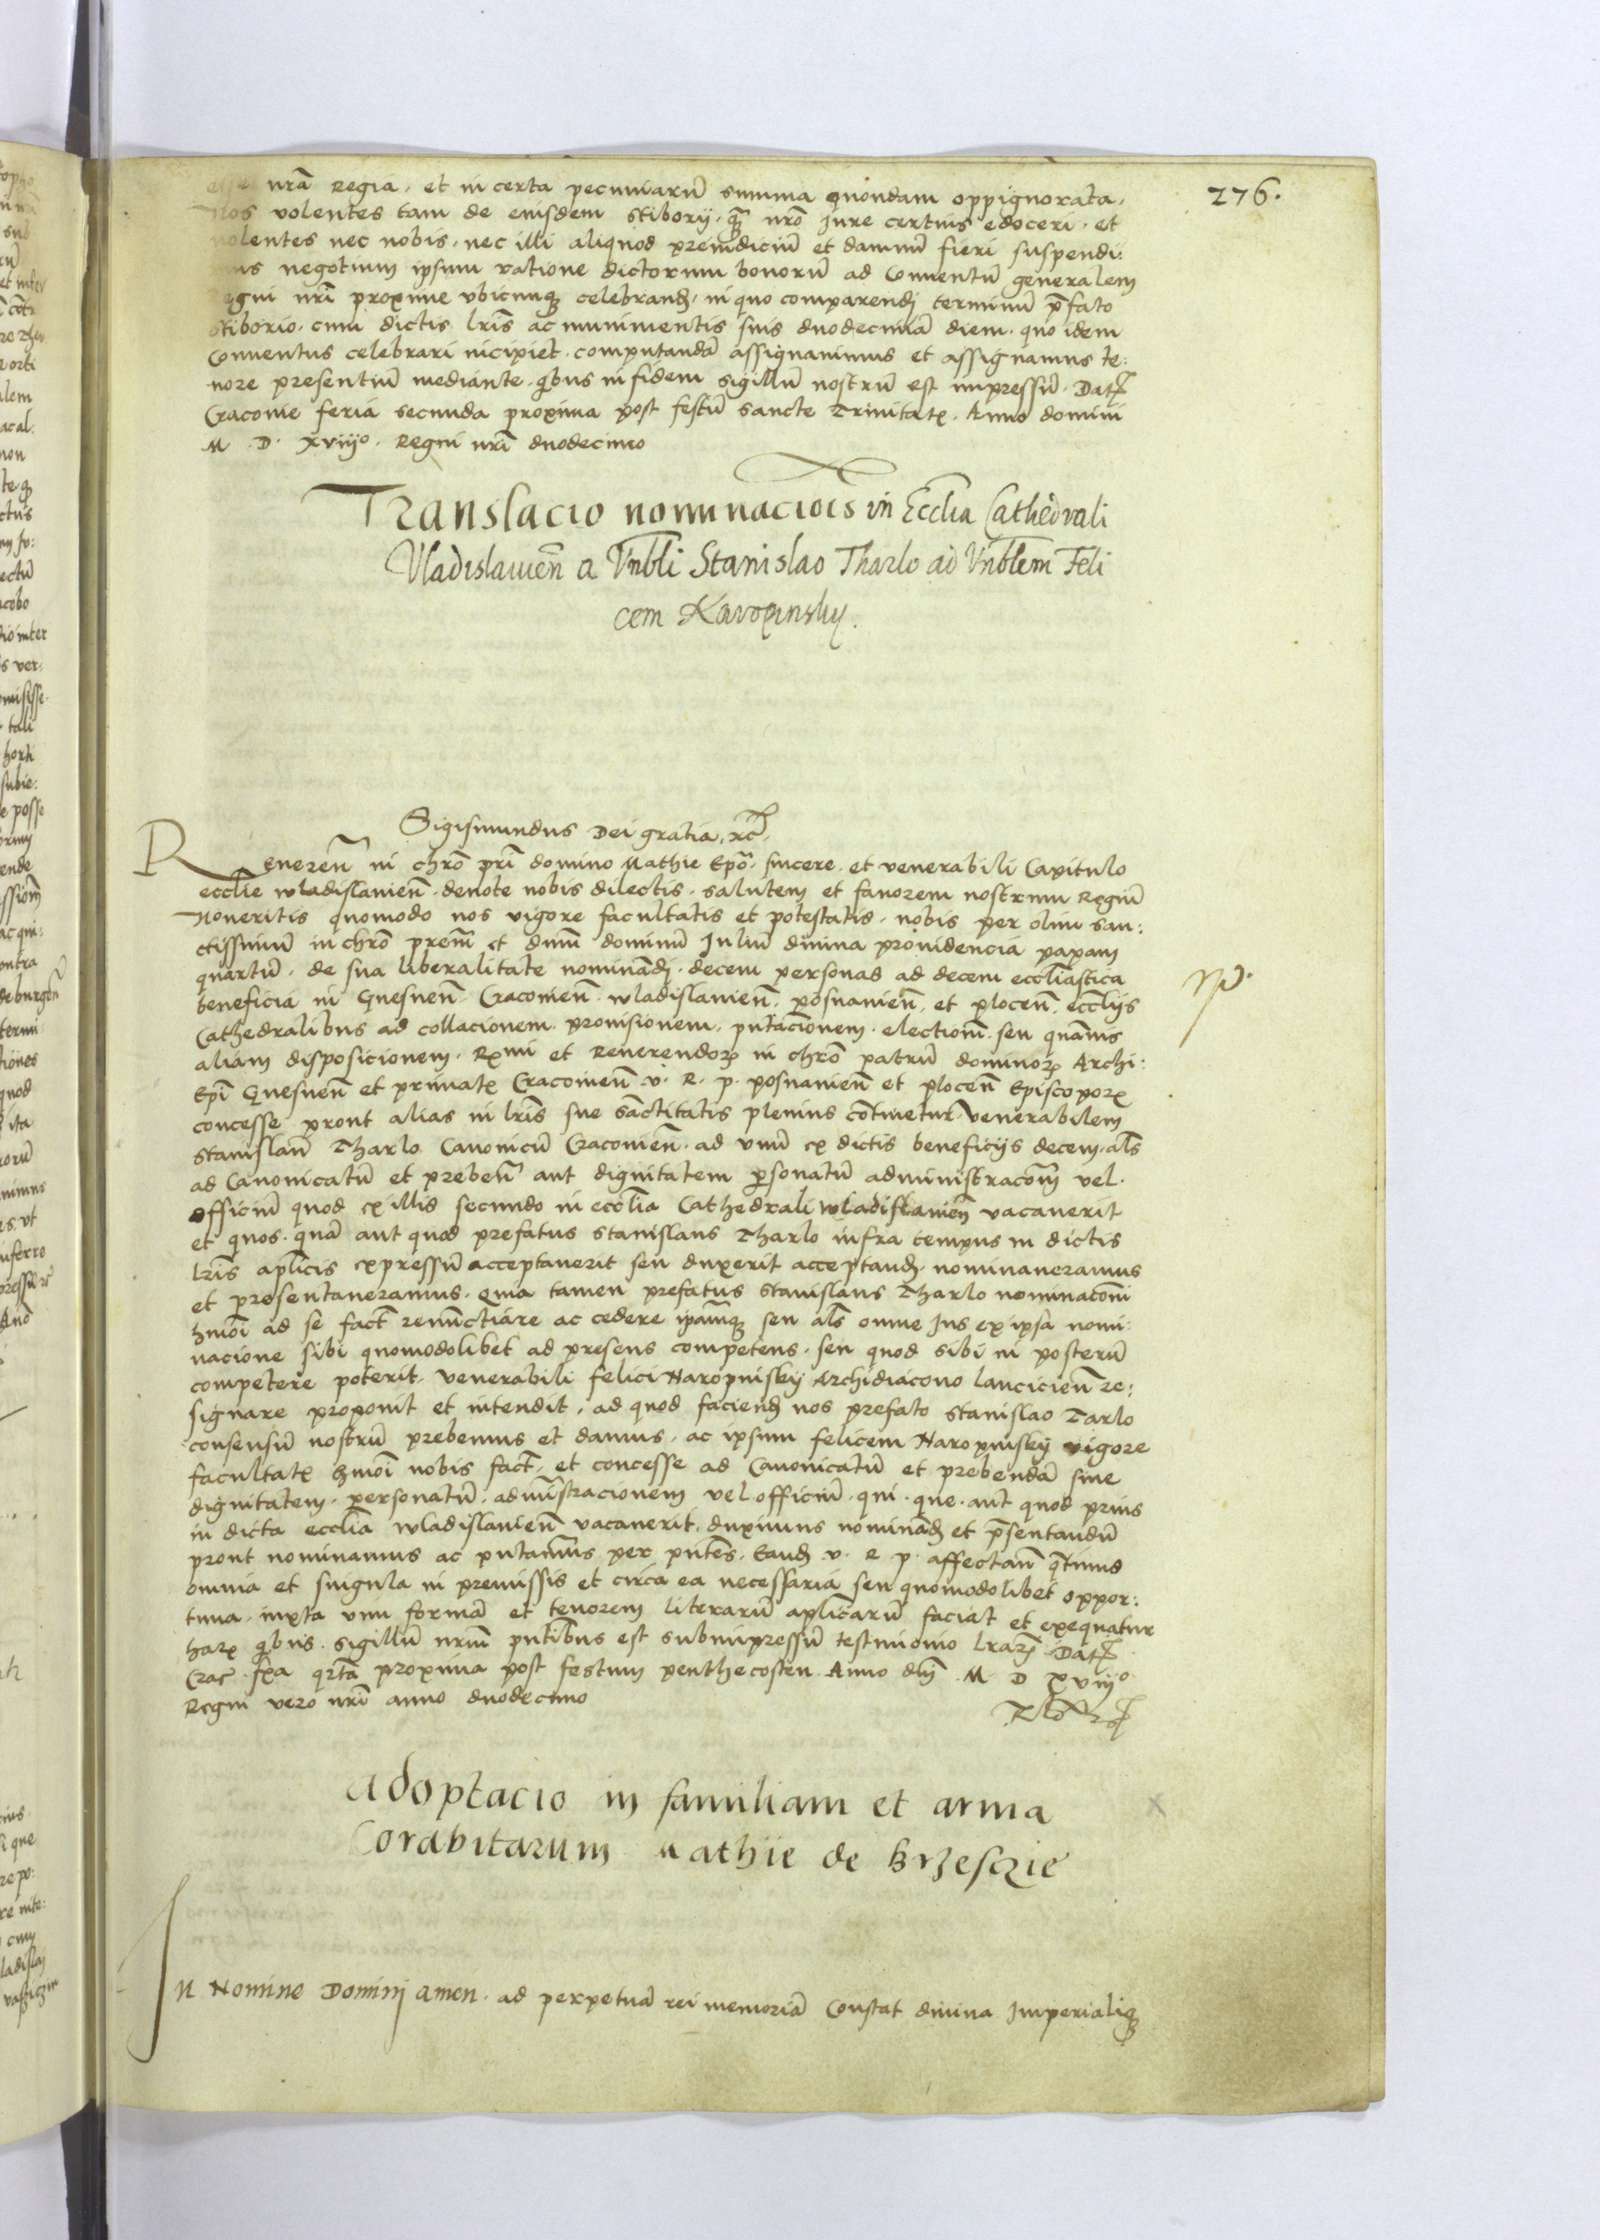 276.
esse nrã Regia, et in certa pecuniarũ summa quondam oppignorata,
Nos volentes tam de eiusdem Stiborij, q̃ nrõ Jure certius edoceri, et
nolentes nec nobis, nec illi aliquod preiudiciũ et damnũ fieri suspendi:
mus negotium ipsum ratione dictorum bonorũ ad Conuentũ generalem
Regni nrĩ proxime vbicunq celebrand, in quo comparendi terminũ p̃fato
Stiborio, cum dictis lrĩs ac munimentis suis duodecimã diem, quo idem
Conuentus celebrari incipiet, computandã assignauimus et assignamus te:
nore presentiũ mediante, qbus in fidem sigillũ nostrũ est impressũ. Dat
Cracouie feria secunda proxima post festũ sancte Trinitatꝭ. Anno domini
M. D. xviijº. Regni nrĩ duodecimo
Translacio nominaciõis in Ecclia Cathedrali
Vladislauieñ a Vnbli Stanislao Tharlo ad Vnblem Feli
cem Naropinsky.
Sigismundus Dei gratia, rc̃.
Reuereñ in chrõ prĩ domino Mathie Epõ, sincere, et venerabili Capitulo
ecclie wladislauieñ, deuote nobis dilectis, salutem et fauorem nostrum Regiũ
Noueritis quomodo nos vigore facultatis et potestatis, nobis per olim san:
ctissimũ in chrõ prem̃ et dnm̃ dominũ Juliũ diuina prouidencia papam
quartũ, de sua liberalitate nominandi, decem personas ad decem eccliastica
beneficia in Gnesneñ Cracouieñ wladislauieñ, posnanieñ, et ploceñ, eccliis
Cathedralibus ad collacionem, prouisionem, pñtacionem, electionẽ seu quamuis
aliam disposicionem, Rm̃i et Reuerendoꝝ in chrõ patrũ dominoꝝ Archi:
Epĩ Gnesneñ et primatꝭ Cracouieñ v. R. p. posnanieñ et ploceñ Episcopoꝝ
concesse prout alias in lrĩs sue sanctitatis plenius cõtinetur venerabilem
Stanislaũ Tharlo Canonicũ Cracouieñ, ad vnũ ex dictis beneficijs decem, als
ad Canonicatũ et prebeñ aut dignitatem personatũ administracõm vel.
officiũ quod ex illis secundo in ecclia Cathedrali wladislauieñ vacauerit
et quos, quã aut quod prefatus Stanislaus Tharlo infra tempus in dictis
lrĩs aplicis expressũ acceptauerit seu duxerit acceptand, nominaueramus
et presentaueramus. Quia tamen prefatus Stanislaus Tharlo nominatõni
hmõi ad se fact̃ renunctiare ac cedere ipamq seu als omne Jus ex ipsa nomi:
nacione sibi quomodolibet ad presens competens, seu quod sibi in posterũ
competere poterit, venerabili felici Naropinsky Archidiacono lancicieñ re:
signare proponit et intendit, ad quod faciend nos prefato Stanislao Tarlo
consensũ nostrũ prebemus et damus, ac ipsum felicem Naropinsky vigore
facultatꝭ hmõi nobis fact̃, et concesse ad Canonicatũ et prebendã siue
dignitatem, personatũ, administracionem vel officiũ, qui, que, aut quod prius
in dicta ecclia wladislauieñ vacauerit, duximus nominad et p̃sentandũ
prout nominamus ac pñtamus per pñtes. Eand v. R. p. affectañ q̃tinus
omnia et singula in premissis et circa ea necessaria seu quomodolibet oppor:
tuna, iuxta vim formã et tenorem literarũ aplicarũ faciat et exequatur
harꝝ qbus sigillũ nrũm pñtibus est subimpressũ testimonio lraꝝ Dat
Crac̃ fra qrta proxima post festum penthecosten Anno dnĩ M D xviijº
Regni vero nrĩ anno duodecimo
Adoptacio in familiam et arma
Corabitarum Mathie de Brzesczie
In Nomine Domini amen. ad perpetuã rei memoriã Constat diuina Imperialiq